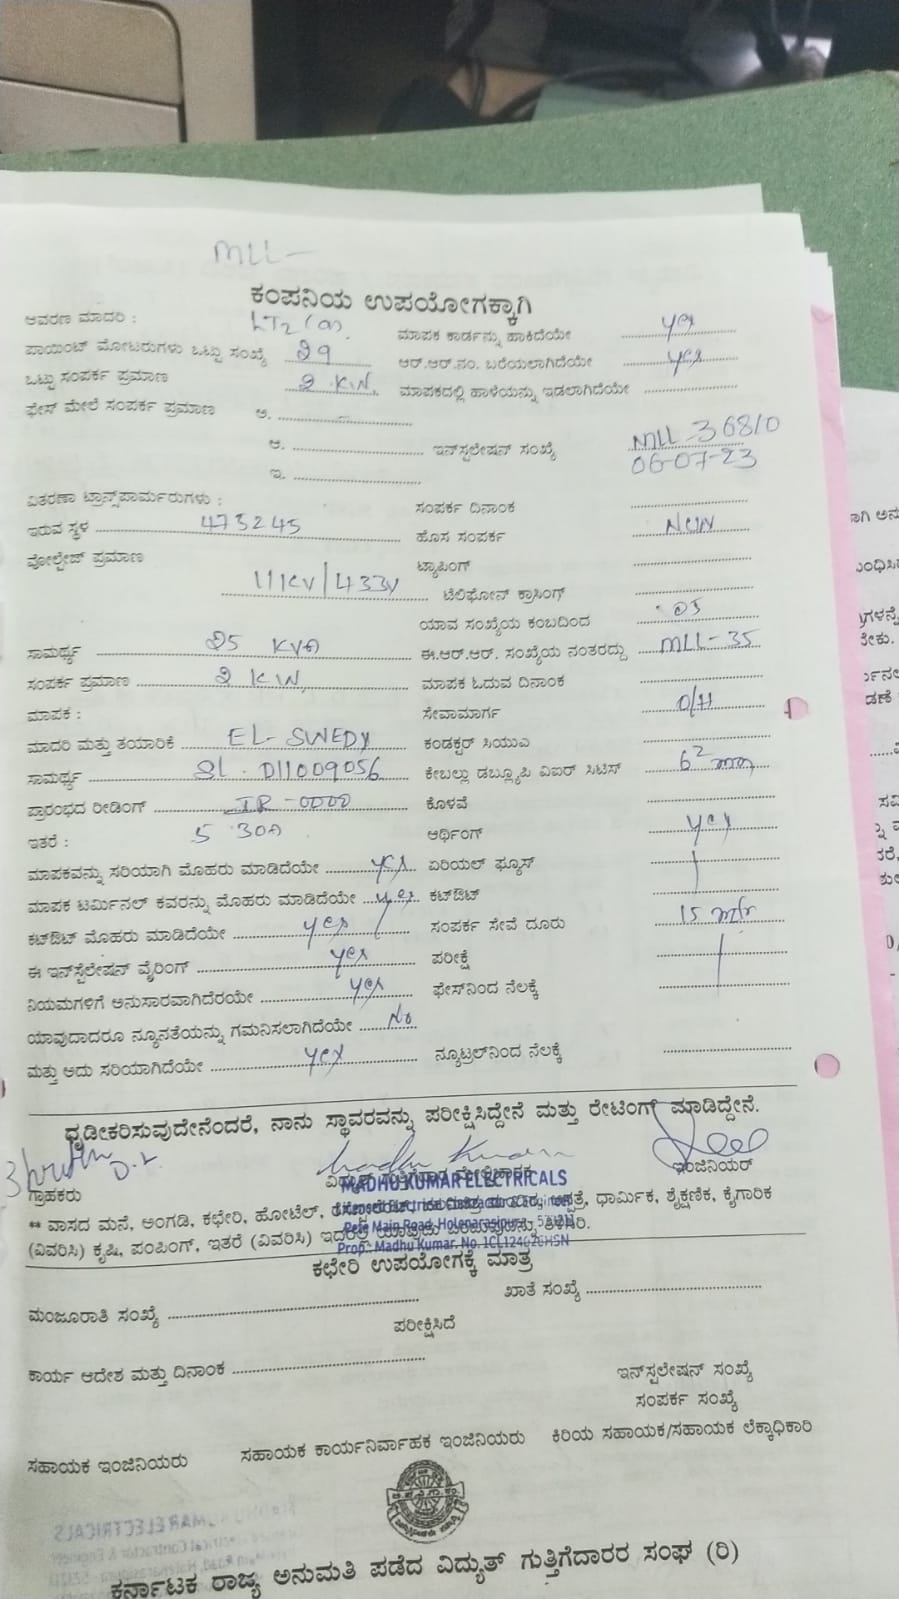 MLL-
ಕಂಪನಿಯ ಉಪಯೋಗಕ್ಕಾಗಿ
ಆವರಣ ಮಾದರಿ : LT2 (a) ಮಾಪಕ ಕಾರ್ಡನ್ನು ಹಾಕಿದೆಯೇ yes
ಪಾಯಿಂಟ್ ಮೋಟರುಗಳು ಒಟ್ಟು ಸಂಖ್ಯೆ 29 ಆರ್.ಆರ್.ನಂ. ಬರೆಯಲಾಗಿದೆಯೇ yes
ಒಟ್ಟು ಸಂಪರ್ಕ ಪ್ರಮಾಣ 2 KW. ಮಾಪಕದಲ್ಲಿ ಹಾಳೆಯನ್ನು ಇಡಲಾಗಿದೆಯೇ
ಫೇಸ್ ಮೇಲೆ ಸಂಪರ್ಕ ಪ್ರಮಾಣ ಅ.
ಆ. ಇನ್‌ಸ್ಟಲೇಷನ್ ಸಂಖ್ಯೆ MLL-36810
ಇ. 06-07-23
ವಿತರಣಾ ಟ್ರಾನ್ಸ್‌ಪಾರ್ಮರುಗಳು : ಸಂಪರ್ಕ ದಿನಾಂಕ
ಇರುವ ಸ್ಥಳ 473245 ಹೊಸ ಸಂಪರ್ಕ New
ವೋಲ್ಟೇಜ್ ಪ್ರಮಾಣ ಟ್ಯಾಪಿಂಗ್
11KV/433V ಟೆಲಿಫೋನ್ ಕ್ರಾಸಿಂಗ್
ಯಾವ ಸಂಖ್ಯೆಯ ಕಂಬದಿಂದ 05
ಸಾಮರ್ಥ್ಯ 25 KVA ಈ.ಆರ್.ಆರ್. ಸಂಖ್ಯೆಯ ನಂತರದ್ದು MLL-35
ಸಂಪರ್ಕ ಪ್ರಮಾಣ 2 KW, ಮಾಪಕ ಓದುವ ದಿನಾಂಕ
ಮಾಪಕ : ಸೇವಾಮಾರ್ಗ O/H
ಮಾದರಿ ಮತ್ತು ತಯಾರಿಕೆ EL-SWEDY ಕಂಡಕ್ಟರ್ ಸಿಯುಎ
ಸಾಮರ್ಥ್ಯ Sl. D11009056 ಕೇಬಲ್ಲು ಡಬ್ಲ್ಯೂಪಿ ವಿಐರ್ ಸಿಟಿಸ್ 6² mm
ಪ್ರಾರಂಭದ ರೀಡಿಂಗ್ IR-0000 ಕೊಳವೆ
ಇತರೆ : 5-30A ಆರ್ಥಿಂಗ್ yes
ಮಾಪಕವನ್ನು ಸರಿಯಾಗಿ ಮೊಹರು ಮಾಡಿದೆಯೇ yes ಏರಿಯಲ್ ಫ್ಯೂಸ್
ಮಾಪಕ ಟರ್ಮಿನಲ್ ಕವರನ್ನು ಮೊಹರು ಮಾಡಿದೆಯೇ yes ಕಟ್‌ಔಟ್
ಕಟ್‌ಔಟ್ ಮೊಹರು ಮಾಡಿದೆಯೇ yes ಸಂಪರ್ಕ ಸೇವೆ ದೂರು 15 mtr
ಈ ಇನ್‌ಸ್ಟಲೇಷನ್ ವೈರಿಂಗ್ yes ಪರೀಕ್ಷೆ
ನಿಯಮಗಳಿಗೆ ಅನುಸಾರವಾಗಿದೆರಯೇ yes ಫೇಸ್‌ನಿಂದ ನೆಲಕ್ಕೆ
ಯಾವುದಾದರೂ ನ್ಯೂನತೆಯನ್ನು ಗಮನಿಸಲಾಗಿದೆಯೇ No
ಮತ್ತು ಅದು ಸರಿಯಾಗಿದೆಯೇ yes ನ್ಯೂಟ್ರಲ್‌ನಿಂದ ನೆಲಕ್ಕೆ
ಧೃಡೀಕರಿಸುವುದೇನೆಂದರೆ, ನಾನು ಸ್ಥಾವರವನ್ನು ಪರೀಕ್ಷಿಸಿದ್ದೇನೆ ಮತ್ತು ರೇಟಿಂಗ್ ಮಾಡಿದ್ದೇನೆ.
ಗ್ರಾಹಕರು ಇಂಜಿನಿಯರ್
MADHU KUMAR ELECTRICALS
** ವಾಸದ ಮನೆ, ಅಂಗಡಿ, ಕಛೇರಿ, ಹೋಟೆಲ್, ಧಾರ್ಮಿಕ, ಶೈಕ್ಷಣಿಕ, ಕೈಗಾರಿಕ
Pete Main Road, Holenarasipura
(ವಿವರಿಸಿ) ಕೃಷಿ, ಪಂಪಿಂಗ್, ಇತರೆ (ವಿವರಿಸಿ)
Prop: Madhu Kumar, No. 1CL12402GHSN
ಕಛೇರಿ ಉಪಯೋಗಕ್ಕೆ ಮಾತ್ರ
ಮಂಜೂರಾತಿ ಸಂಖ್ಯೆ ಖಾತೆ ಸಂಖ್ಯೆ
ಪರೀಕ್ಷಿಸಿದೆ
ಕಾರ್ಯ ಆದೇಶ ಮತ್ತು ದಿನಾಂಕ
ಇನ್‌ಸ್ಟಲೇಷನ್ ಸಂಖ್ಯೆ
ಸಂಪರ್ಕ ಸಂಖ್ಯೆ
ಸಹಾಯಕ ಇಂಜಿನಿಯರು ಸಹಾಯಕ ಕಾರ್ಯನಿರ್ವಾಹಕ ಇಂಜಿನಿಯರು ಕಿರಿಯ ಸಹಾಯಕ/ಸಹಾಯಕ ಲೆಕ್ಕಾಧಿಕಾರಿ
ಕರ್ನಾಟಕ ರಾಜ್ಯ ಅನುಮತಿ ಪಡೆದ ವಿದ್ಯುತ್ ಗುತ್ತಿಗೆದಾರರ ಸಂಘ (ರಿ)